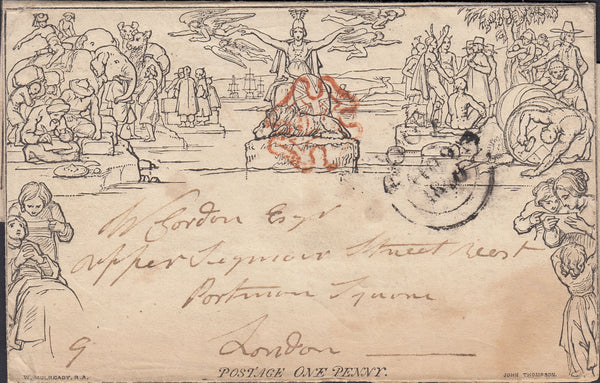 W Gordon Esqr
Upper Seymour Street West
Portman Square
London
9
W. MULREADY, R.A.
POSTAGE ONE PENNY.
JOHN THOMPSON.